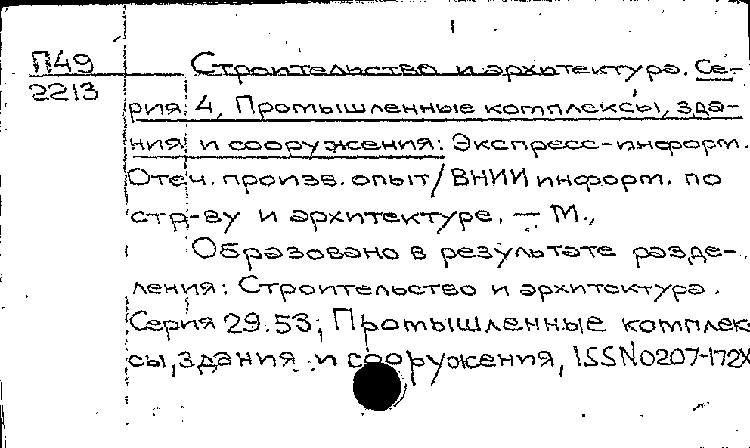 П49 Строительство и архитектура. Се-
2213
рия 4, Промышленные комплексы, зда-
ния и сооружения: Экспресс-информ.
Отеч. произв. опыт / ВНИИ информ. по
стр-ву и архитектуре. — М.,
Образовано в результате разде-
ления: Строительство и архитектура.
Серия 29.53; Промышленные комплек
сы, здания и сооружения, ISSN0207-172X